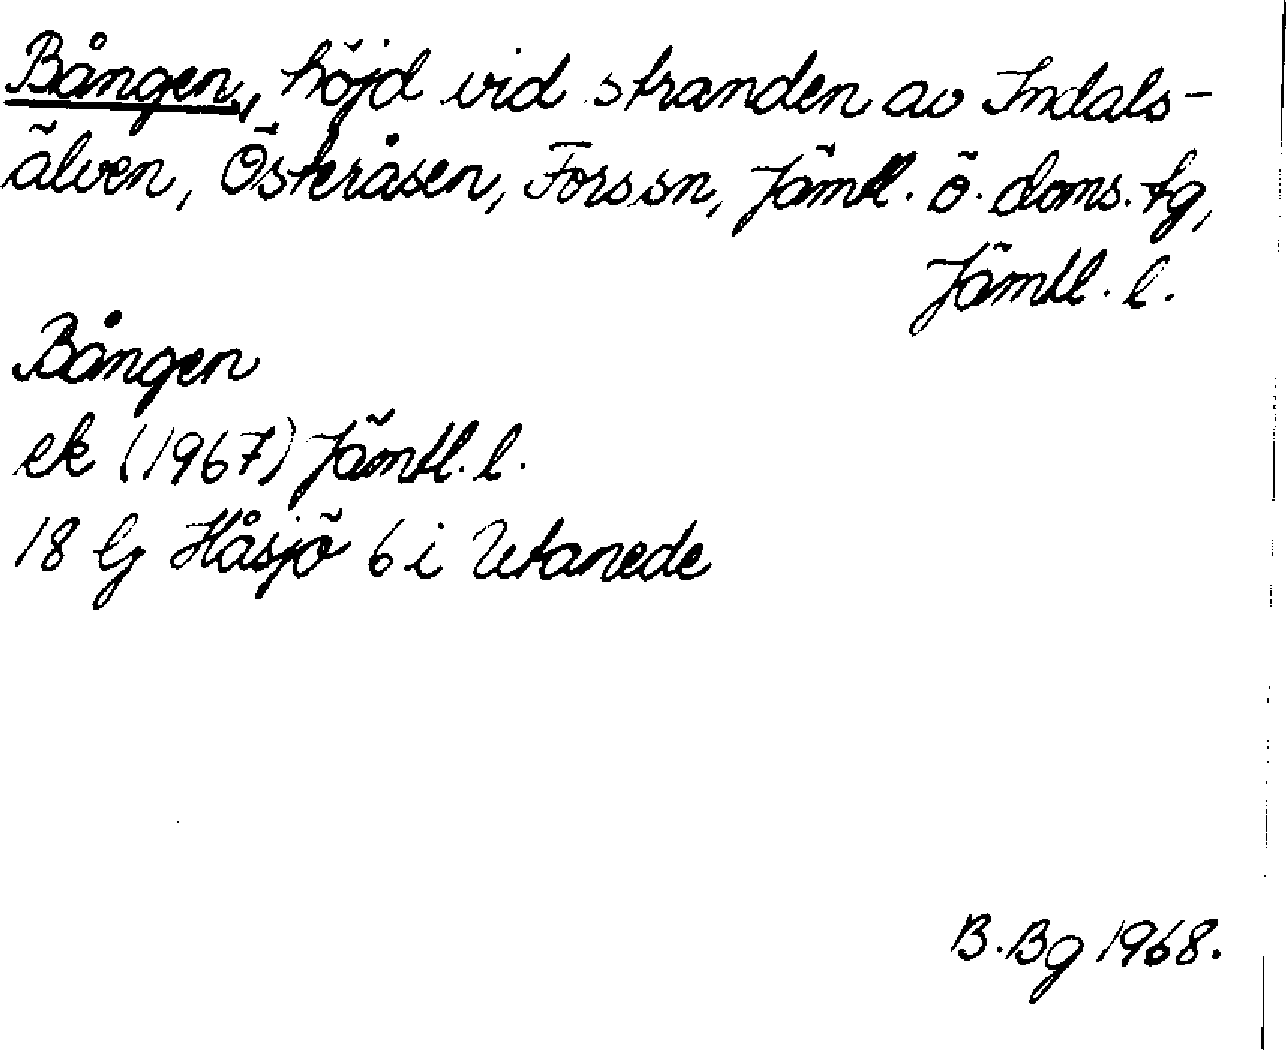 Bången, höjd vid stranden av Indals-
älven, Österåsen, Fors sn, Jämtl. ö. doms. tg,
Jämtl. l.
Bången
ek (1967) Jämtl. l.
18 G Håsjö 6 i Utanede
B. Bg 1968.